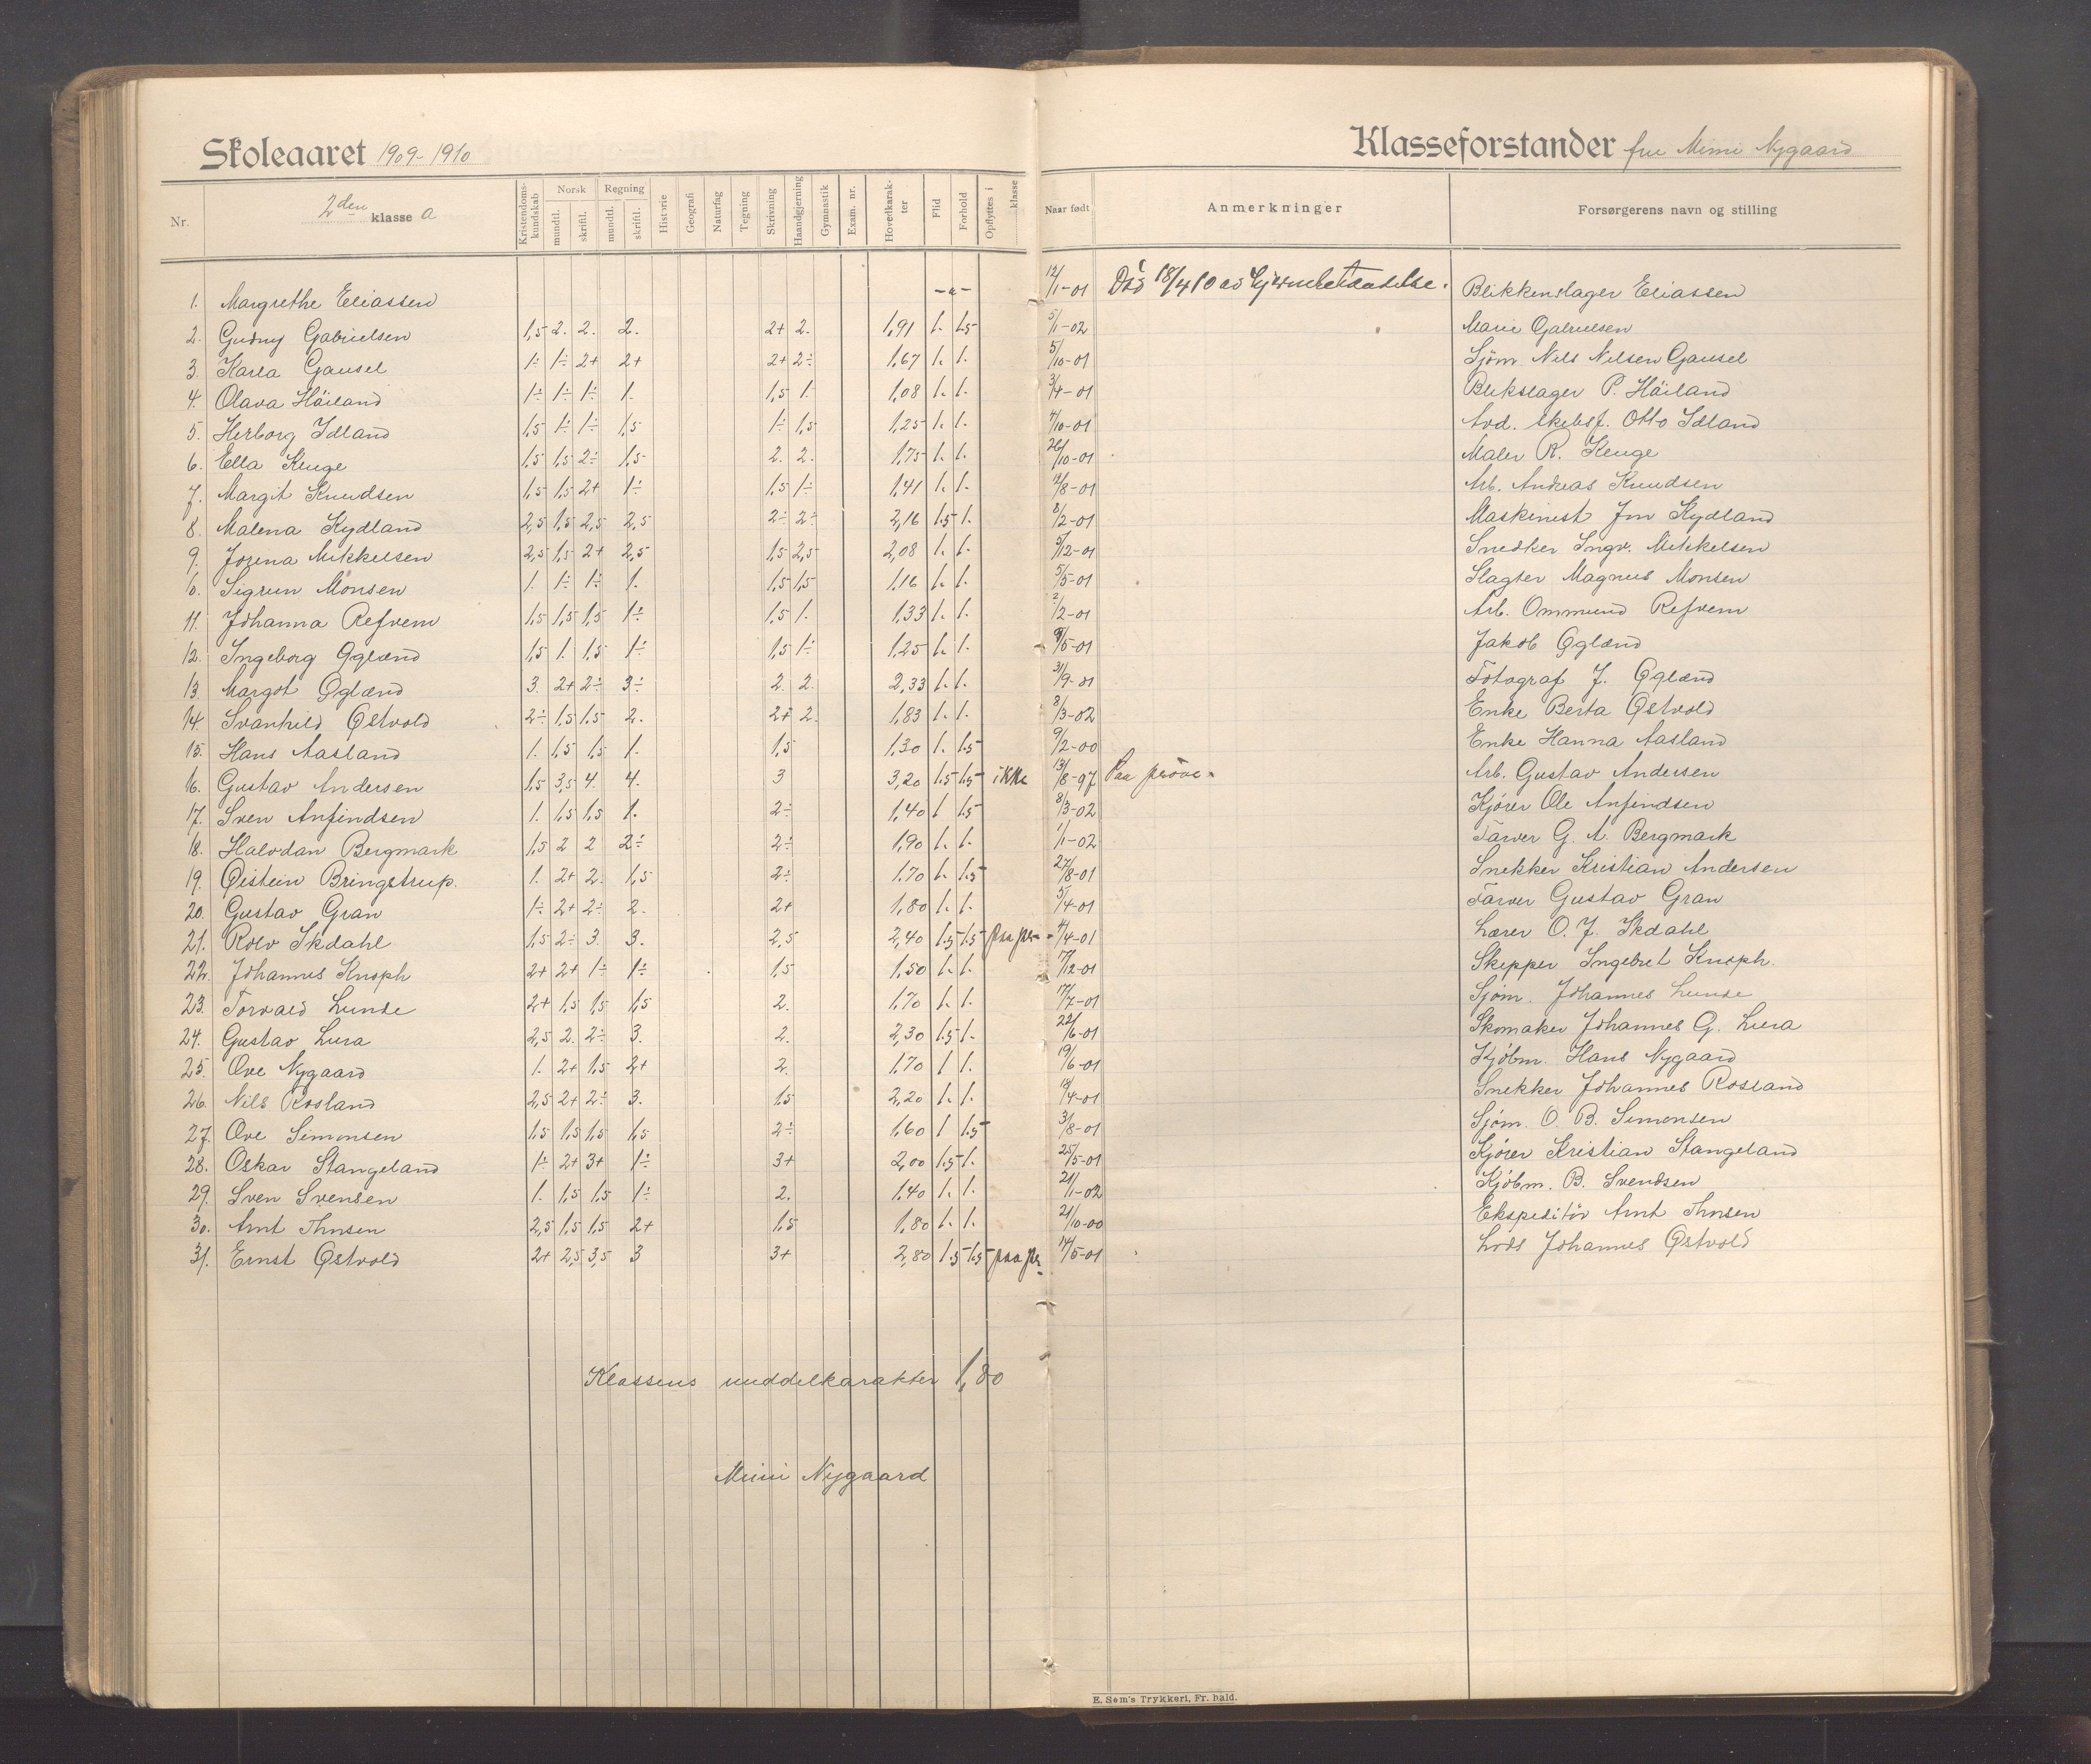 Skoleaaret 1909-1910
Klasseforstander fru Mimi Nygaard
Nr. 2den klasse a Kristendomskundskab Norsk mundtl. skriftl. Regning mundtl. skriftl. Historie Geografi Naturfag Tegning Skrivning Haandgjerning Gymnastik Exam. nr. Hovedkarakter Flid Forhold Opflyttes i klasse Naar født Anmerkninger Forsørgerens navn og stilling
1. Margrethe Eliassen -"- 12/1-01 Død 18/4 10 av hjernebetændelse. Blikkenslager Eliassen
2. Gudny Gabrielsen 1,5 2. 2. 2. 2+ 2. 1,91 1. 1.5 5/1-02 Marie Gabrielsen
3. Karla Gausel 1÷ 1÷ 2+ 2+ 2+ 2÷ 1,67 1. 1. 5/10-01 Sjøm Nils Nilsen Gausel
4. Olava Håiland 1÷ 1÷ 1÷ 1. 1,5 1. 1,08 1. 1. 3/4-01 Blikslager P. Håiland
5. Herborg Idland 1,5 1÷ 1÷ 1,5 1÷ 1,5 1,25 1. 1. 4/10-01 Avd. skibsf. Otto Idland
6. Ella Kluge 1,5 1,5 2÷ 1,5 2. 2. 1,75 1. 1. 26/10-01 Maler R. Kluge
7. Margit Knudsen 1,5 1,5 2+ 1÷ 1,5 1÷ 1,41 1. 1. 12/8-01 Arb. Andreas Knudsen
8. Malena Kydland 2,5 1,5 2,5 2,5 2÷ 2÷ 2,16 1.5 1. 8/2-01 Maskinist Jon Kydland
9. Jorina Mikkelsen 2,5 1,5 2+ 2,5 1,5 2,5 2,08 1. 1. 5/12-01 Snedker Ingv. Mikkelsen
10. Sigrun Monsen 1. 1÷ 1÷ 1. 1,5 1,5 1,16 1. 1. 5/5-01 Slagter Magnus Monsen
11. Johanna Refvem 1,5 1,5 1,5 1÷ 1,5 1. 1,33 1. 1. 2/2-01 Arb. Ommund Refvem
12. Ingeborg Øglænd 1,5 1. 1,5 1÷ 1,5 1÷ 1,25 1. 1. 9/5-01 Jakob Øglænd
13. Margot Øglænd 3. 2+ 2÷ 3÷ 2. 2. 2,33 1. 1. 3/9-01 Fotograf J. Øglænd
14. Svanhild Østvold 2÷ 1,5 1,5 2. 2+ 2. 1,83 1. 1. 8/3-02 Enke Berta Østvold
15. Hans Aasland 1. 1,5 1,5 1. 1,5 1,30 1. 1.5 9/2-00 Enke Hanna Aasland
16. Gustav Andersen 1,5 3,5 4. 4. 3 3,20 1.5 1.5 ikke 13/8-97 Paa prøve. Arb. Gustav Andersen
17. Sven Anfindsen 1. 1,5 1,5 1. 2÷ 1,40 1 1.5 8/3-02 Kjører Ole Anfindsen
18. Halvdan Bergmark 1,5 2 2 2÷ 2÷ 1,90 1. 1. 1/1-02 Farver G. A. Bergmark
19. Øistein Bringstrup. 1. 2+ 2. 1,5 2÷ 1,70 1. 1.5 27/8-01 Snekker Kristian Andersen
20. Gustav Gran 1÷ 2+ 2÷ 2. 2+ 1,80 1. 1. 5/4-01 Farver Gustav Gran
21. Rolv Ikdahl 1,5 2÷ 3. 3. 2,5 2,40 1.5 1.5 paa pr. 4/4-01 Lærer O. J. Ikdahl
22. Johannes Knoph 2+ 2+ 1÷ 1÷ 1,5 1,50 1. 1. 17/12-01 Skipper Ingebret Knoph.
23. Torvald Lunde 2+ 1,5 1,5 1,5 2. 1,70 1. 1. 17/7-01 Sjøm. Johannes Lunde
24. Gustav Lura 2,5 2. 2÷ 3. 2. 2,30 1.5 1. 22/6-01 Skomaker Johannes G. Lura
25. Ove Nygaard 1. 2+ 1,5 2+ 2. 1,70 1 1. 19/6-01 Kjøbm. Hans Nygaard
26. Nils Rosland 2,5 2+ 2÷ 3. 1,5 2,20 1. 1. 18/4-01 Snekker Johannes Rosland
27. Ove Simonsen 1,5 1,5 1,5 1,5 2÷ 1,60 1 1.5 3/8-01 Sjøm. O. B. Simonsen
28. Oskar Stangeland 1÷ 2+ 3+ 1÷ 3+ 2,00 1.5 1. 25/5-01 Kjører Kristian Stangeland
29. Sven Svensen 1. 1,5 1,5 1÷ 2. 1,40 1. 1. 21/1-02 Kjøbm. B. Svendsen
30. Arnt Thnsen 2,5 1,5 1,5 2+ 1,5 1,80 1. 1. 21/10-00 Ekspeditør Arnt Thnsen
31. Ernst Østvold 2+ 2,5 3,5 3 3+ 2,80 1.5 1.5 paa pr. 14/5-01 Lods Johannes Østvold
Klassens middelkarakter 1,80
Mimi Nygaard
E. Sem's Trykkeri, Fr. hald.